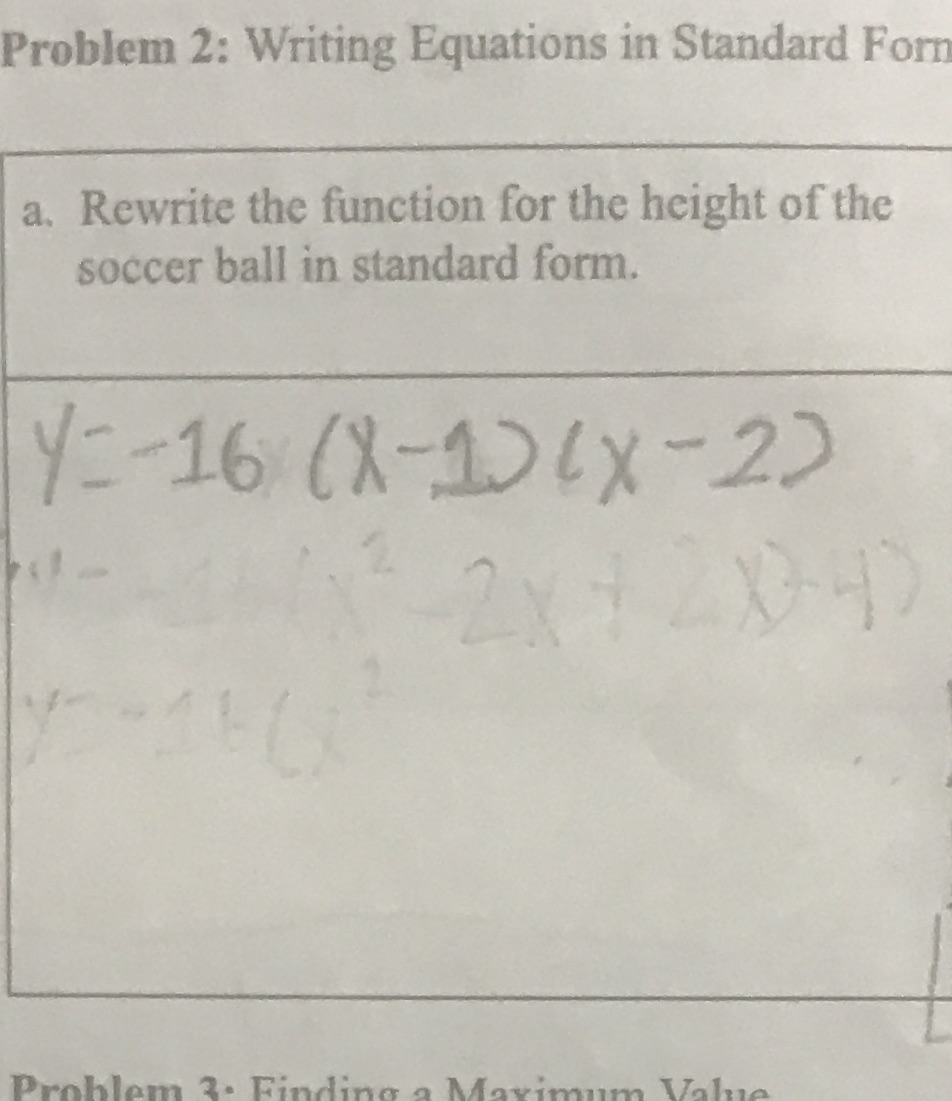 Problem 2: Writing Equations in Standard Form
a. Rewrite the function for the height of the
soccer ball in standard form.
y=-16 (x-1)(x-2)
y=-16(x² -2x+2x)+4)
y=-16(x²
Problem 3: Finding a Maximum Value